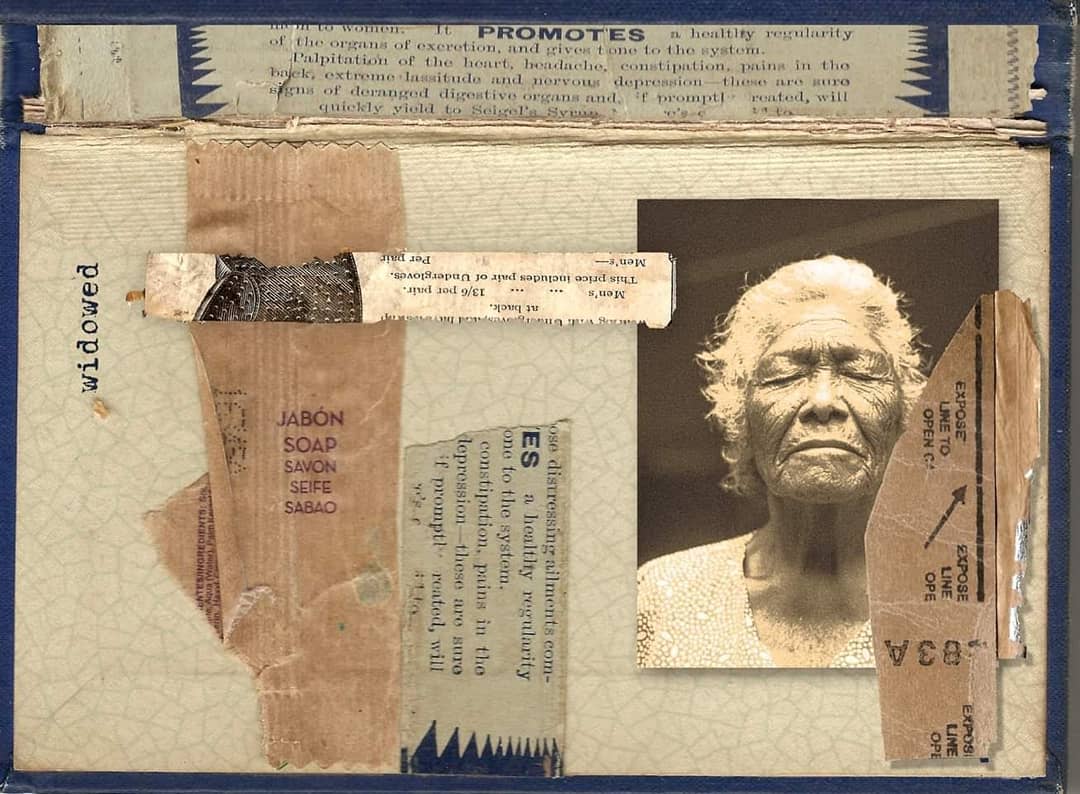 PROMOTES a healthy regularity
of the organs of excretion, and gives tone to the system.
Palpitation of the heart, headache, constipation, pains in the
back, extreme lassitude and nervous depression—these are sure
signs of deranged digestive organs and, if promptl reated, will
quickly yield to Seigel's Syrup
widowed
Men's— Per pair
This price includes pair of Undergloves.
Men's ... ... 13/6 per pair.
at back.
JABÓN
SOAP
SAVON
SEIFE
SABAO
ose distressing ailments com-
ES a healthy regularity
one to the system.
constipation, pains in the
depression—these are sure
if promptl reated, will
EXPOSE
LINE TO
OPEN
EXPOSE
LINE
OPE
83A
EXPOS
LINE
OPE